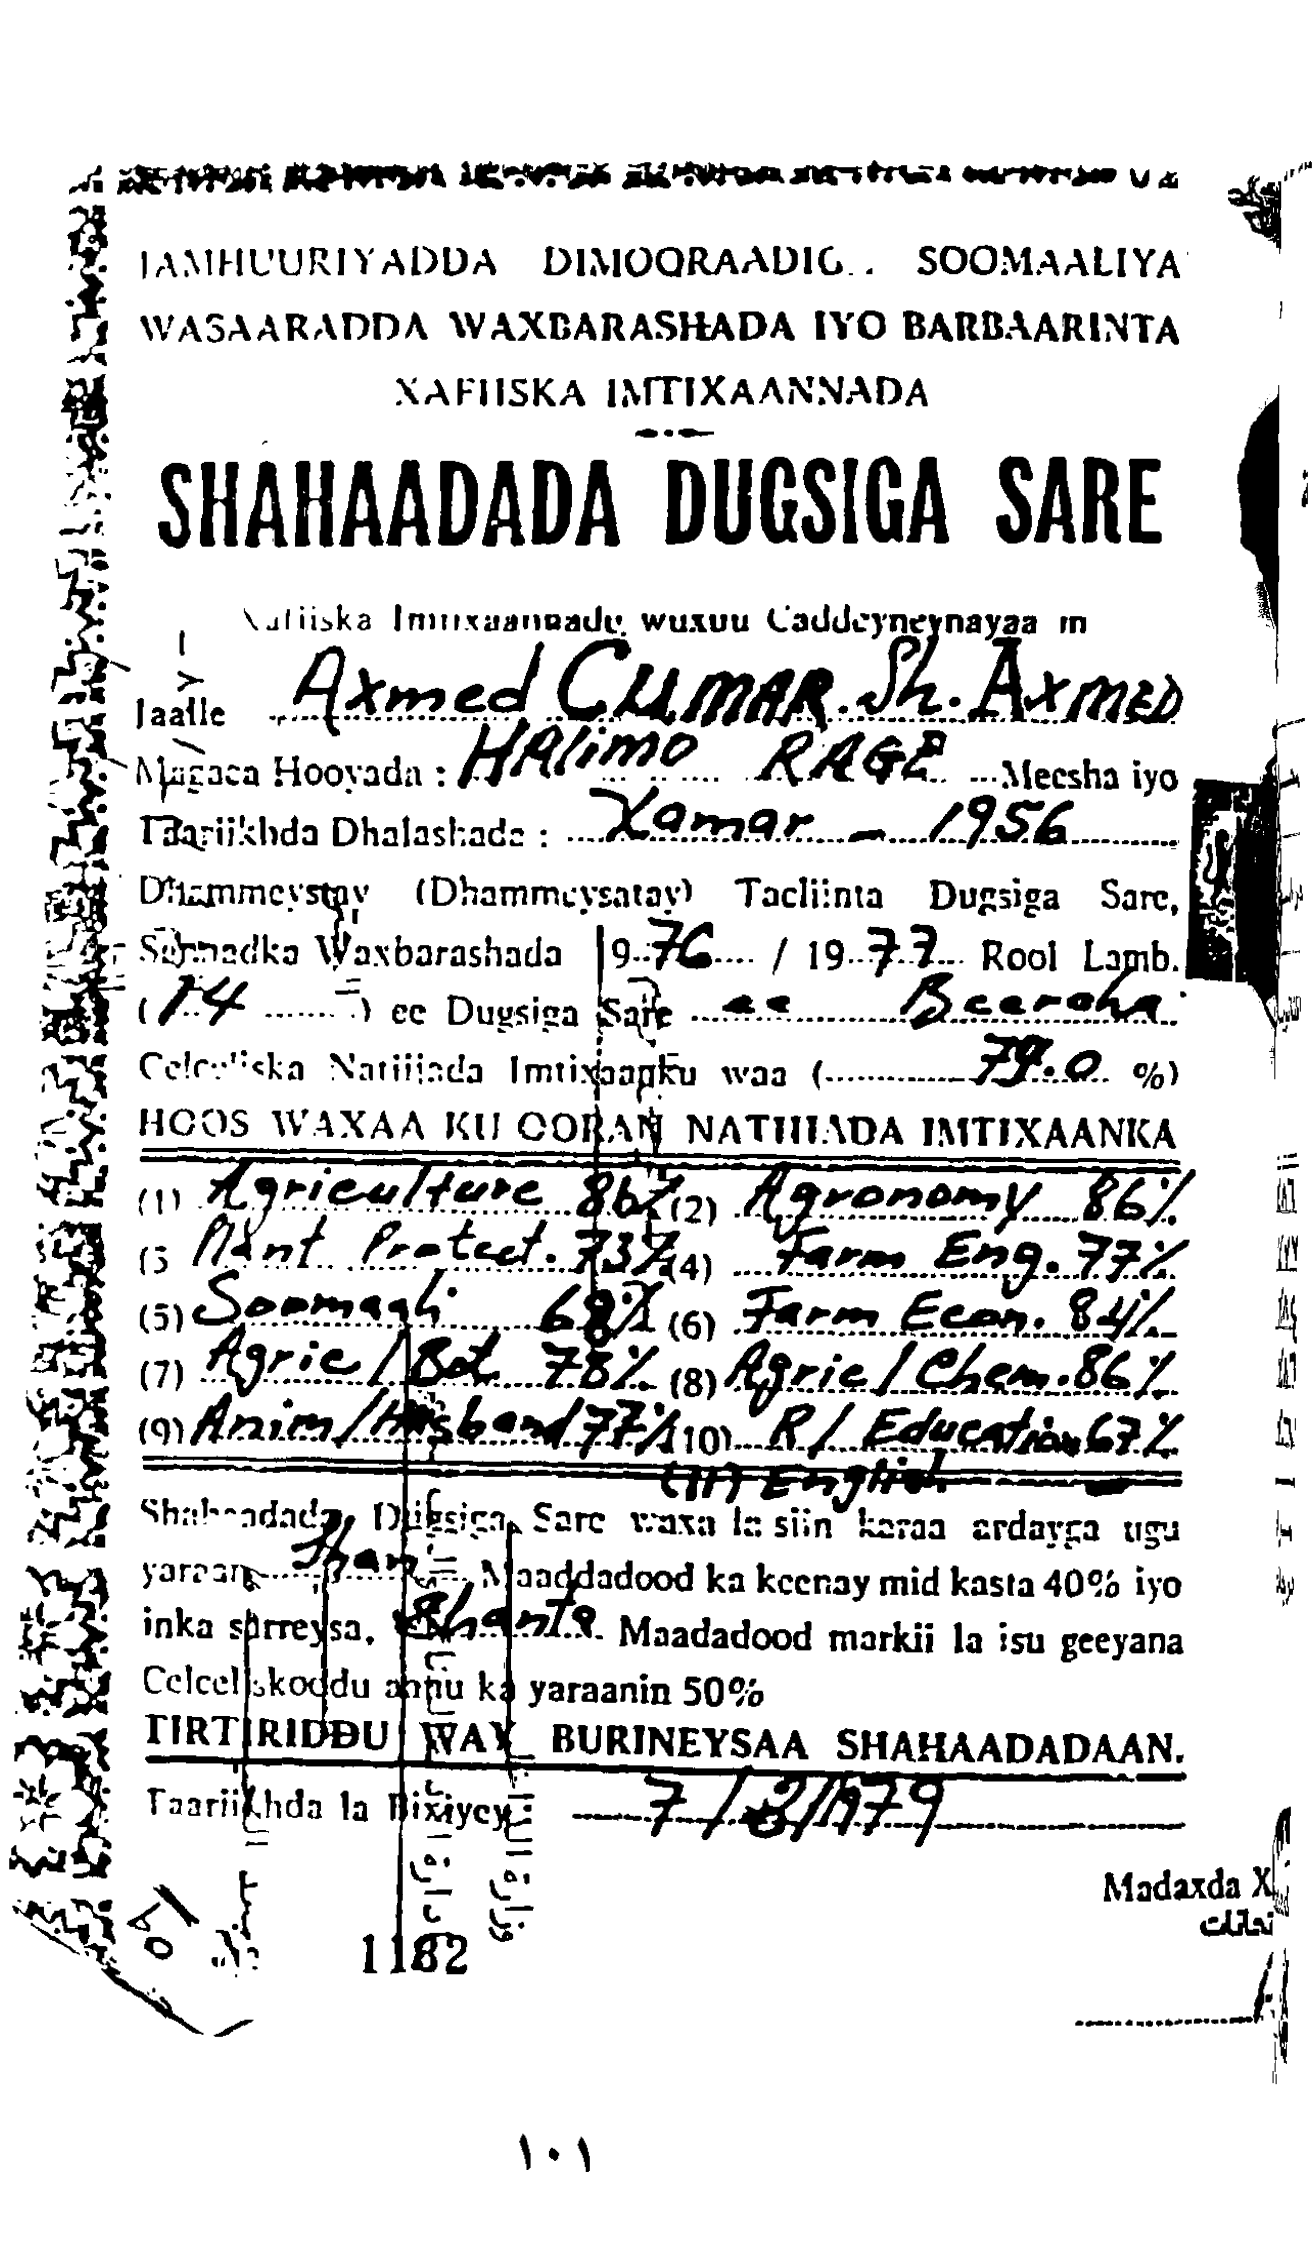 JAMHUURIYADDA DIMOQRAADIG.. SOOMAALIYA
WASAARADDA WAXBARASHADA IYO BARBAARINTA
XAFIISKA IMTIXAANNADA
SHAHAADADA DUGSIGA SARE
Xafiiska Imtixaannadu wuxuu Caddeyneynayaa in
Jaalle Axmed CUMAR. Sh. AxMED
Magaca Hooyada : HALimo RAGE Meesha iyo
Taariikhda Dhalashada : Xamar - 1956
Dhammeystay (Dhammeysatay) Tacliinta Dugsiga Sare,
Sannadka Waxbarashada 1976 / 1977 Rool Lamb.
(14) ee Dugsiga Sare ee Beeroha
Celceliska Natiijada Imtixaanku waa (79.0 %)
HOOS WAXAA KU QORAN NATIIJADA IMTIXAANKA
(1) Agriculture 86% (2) Agronomy 86%
(3 Plant Protect. 73% (4) Farm Eng. 77%
(5) Soomaali 68% (6) Farm Econ. 84%
(7) Agric/Bot 78% (8) Agric/Chem. 86%
(9) Anim/Husband 77% (10) R/ Education 67%
(11) English -
Shahaadada Dugsiga Sare waxa la siin karaa ardayga ugu
yaraan Maaddadood ka keenay mid kasta 40% iyo
inka sarreysa, Shanta Maadadood markii la isu geeyana
Celceliskoodu annu ka yaraanin 50%
TIRTIRIDDU WAY BURINEYSAA SHAHAADADAAN.
Taariikhda la Bixiyey : 7/8/1979
Madaxda X
1182
١٠١